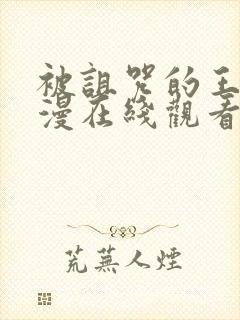 被詛咒的王
漫在綫觀看
荒蕪人煙